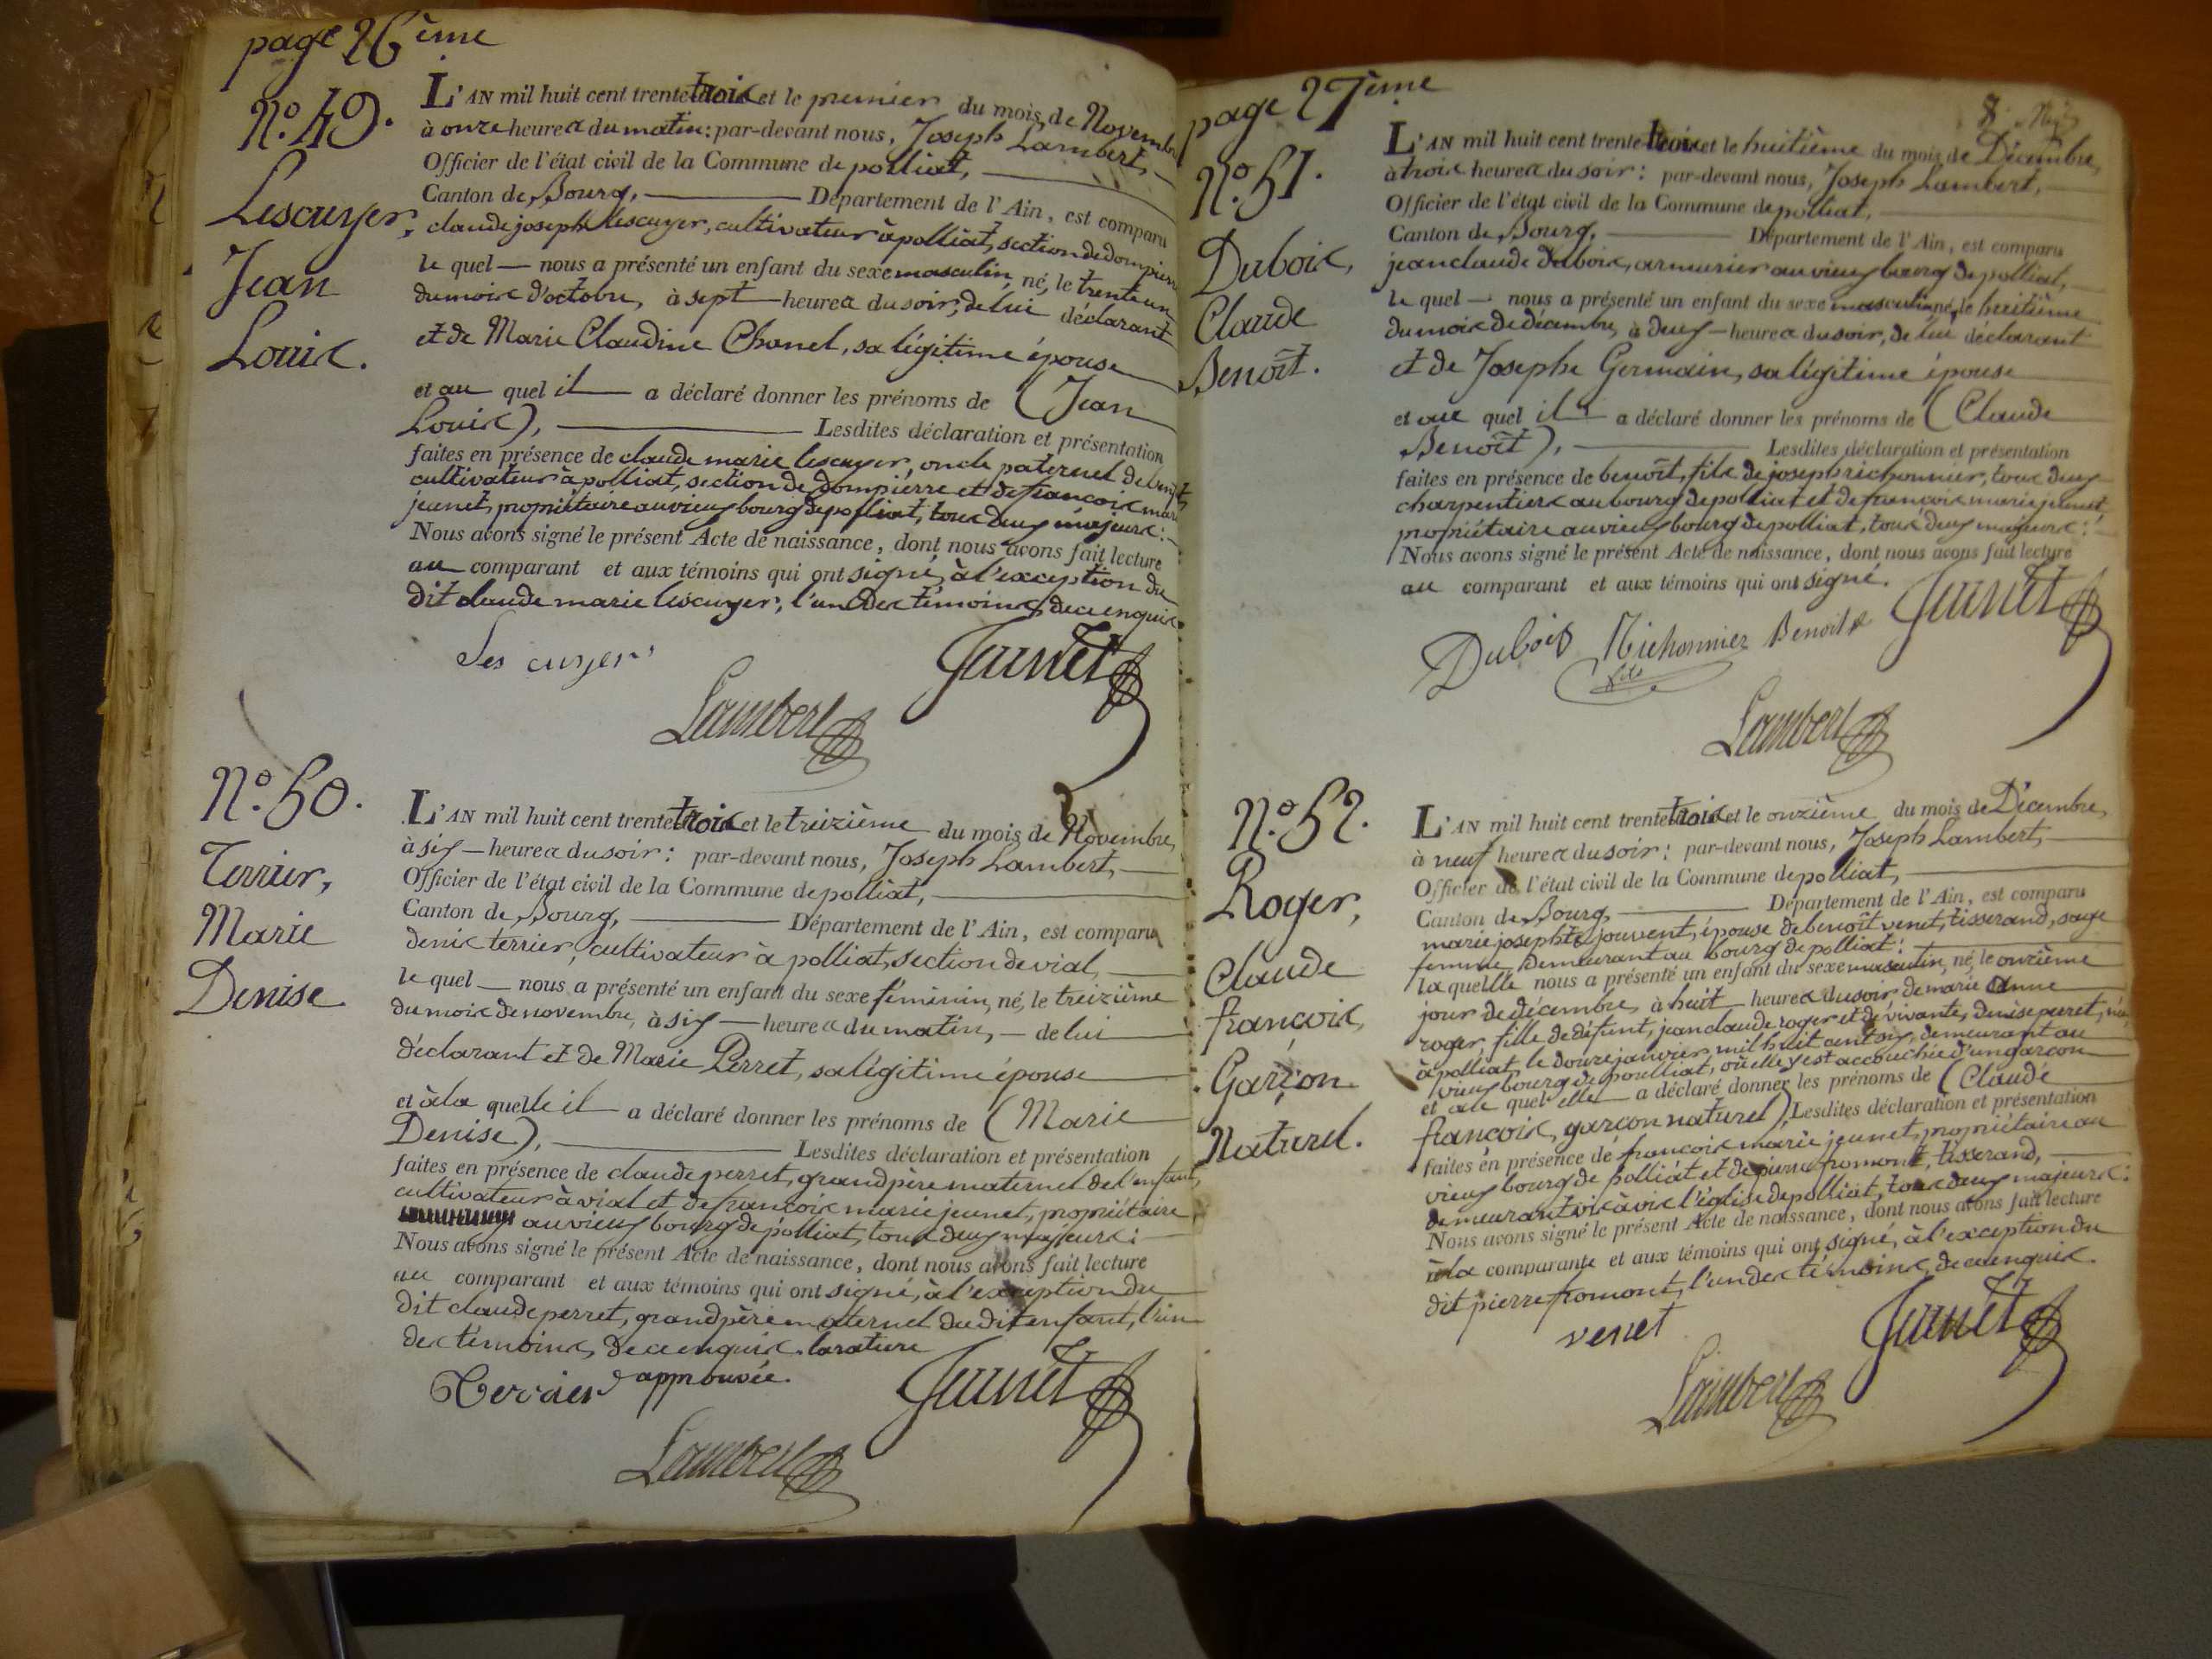 page 26ème
N.º 49.
Lescuyer,
Jean
Louis.
L'AN mil huit cent trente trois et le premier du mois de Novembre
à onze heures du matin: par-devant nous, Joseph Lambert,
Officier de l'état civil de la Commune de polliat,
Canton de Bourg, Département de l'Ain, est comparu
claude joseph lescuyer, cultivateur à polliat, section de dompierre
le quel nous a présenté un enfant du sexe masculin, né, le trente un
du mois d'octobre, à sept heures du soir, de lui déclarant
et de Marie Claudine Chanel, sa légitime épouse
et au quel il a déclaré donner les prénoms de (Jean
Louis), Lesdites déclaration et présentation
faites en présence de claude marie lescuyer, oncle paternel de
cultivateur à polliat, section de dompierre et de françois marie
jeunet, propriétaire au vieux bourg de polliat, tous deux majeurs:
Nous avons signé le présent Acte de naissance, dont nous avons fait lecture
au comparant et aux témoins qui ont signé, à l'exception du
dit claude marie lescuyer, l'un des témoins, de ce enquis
Les cuyer
Jeunet
Lambert
N.º 50.
Terrier,
Marie
Denise
L'AN mil huit cent trente trois et le treizième du mois de Novembre,
à six heures du soir: par-devant nous, Joseph Lambert,
Officier de l'état civil de la Commune de polliat,
Canton de Bourg, Département de l'Ain, est comparu
denis terrier, cultivateur à polliat, section de vial,
le quel nous a présenté un enfant du sexe féminin, né, le treizième
du mois de novembre, à six heures du matin, de lui
déclarant et de Marie Perret, sa légitime épouse
et à la quelle il a déclaré donner les prénoms de (Marie
Denise), Lesdites déclaration et présentation
faites en présence de claude perret, grand père maternel de l'enfant,
cultivateur à vial et de françois marie jeunet, propriétaire,
au vieux bourg de polliat, tous deux majeurs:
Nous avons signé le présent Acte de naissance, dont nous avons fait lecture
au comparant et aux témoins qui ont signé, à l'exception du
dit claude perret, grand père maternel du dit enfant, l'un
des témoins, de ce enquis. la rature
approuvée.
Terrier
Jeunet
Lambert
page 27ème
N.º 51.
Dubois,
Claude
Benoît.
L'AN mil huit cent trente trois et le huitième du mois de Décembre,
à trois heures du soir: par-devant nous, Joseph Lambert,
Officier de l'état civil de la Commune de polliat,
Canton de Bourg, Département de l'Ain, est comparu
jean claude dubois, armurier au vieux bourg de polliat,
le quel nous a présenté un enfant du sexe masculin, né, le huitième
du mois de décembre, à deux heures du soir, de lui déclarant
et de Josephe Germain, sa légitime épouse
et au quel il a déclaré donner les prénoms de (Claude
Benoît), Lesdites déclaration et présentation
faites en présence de benoît, fils de joseph richonnier, tous deux
charpentiers au bourg de polliat et de françois marie jeunet,
propriétaire au vieux bourg de polliat, tous deux majeurs:
Nous avons signé le présent Acte de naissance, dont nous avons fait lecture
au comparant et aux témoins qui ont signé.
Dubois Richonnier Benoit Jeunet
fils
Lambert
N.º 52.
Roger,
Claude
françois,
Garçon
Naturel.
L'AN mil huit cent trente trois et le onzième du mois de Décembre,
à neuf heures du soir: par-devant nous, Joseph Lambert,
Officier de l'état civil de la Commune de polliat,
Canton de Bourg, Département de l'Ain, est comparu
marie josephte jouvent, épouse de benoît venet, tisserand, sage
femme demeurant au bourg de polliat:
laquelle nous a présenté un enfant du sexe masculin, né, le onzième
jour de décembre, à huit heures du soir, de marie Anne
roger, fille de défunt, jean claude roger et de vivante, denise perret, née
à polliat le douze janvier mil huit cent six, demeurant au
vieux bourg de poulliat, où elle y est accouchée d'un garcon
et au quel elle a déclaré donner les prénoms de (Claude
françois, garçon naturel), Lesdites déclaration et présentation
faites en présence de françois marie jeunet, propriétaire au
vieux bourg de polliat et de pierre fromont, tisserand,
demeurant vis à vis l'église de polliat, tous deux majeurs:
Nous avons signé le présent Acte de naissance, dont nous avons fait lecture
à la comparante et aux témoins qui ont signé, à l'exception du
dit pierre fromont, l'un des témoins, de ce enquis.
venet
Jeunet
Lambert